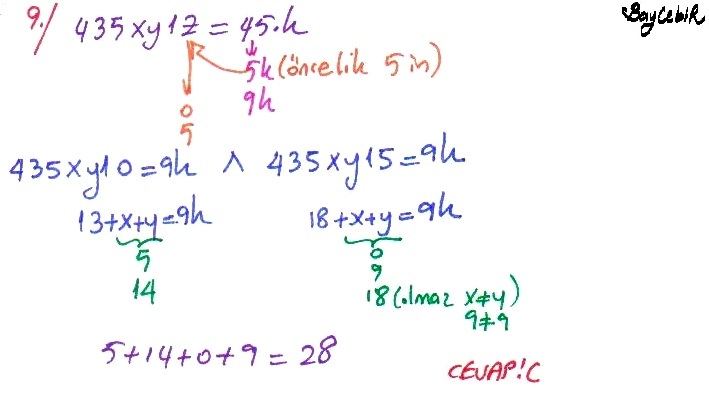 BayCebiR
9./ 435xy1z = 45.k
5k (öncelik 5 in)
9k
0
5
435xy10=9k ∧ 435xy15=9k
13+x+y=9k 18+x+y=9k
5 0
14 9
18 (olmaz x≠y)
9≠9
5+14+0+9=28
CEVAP!C